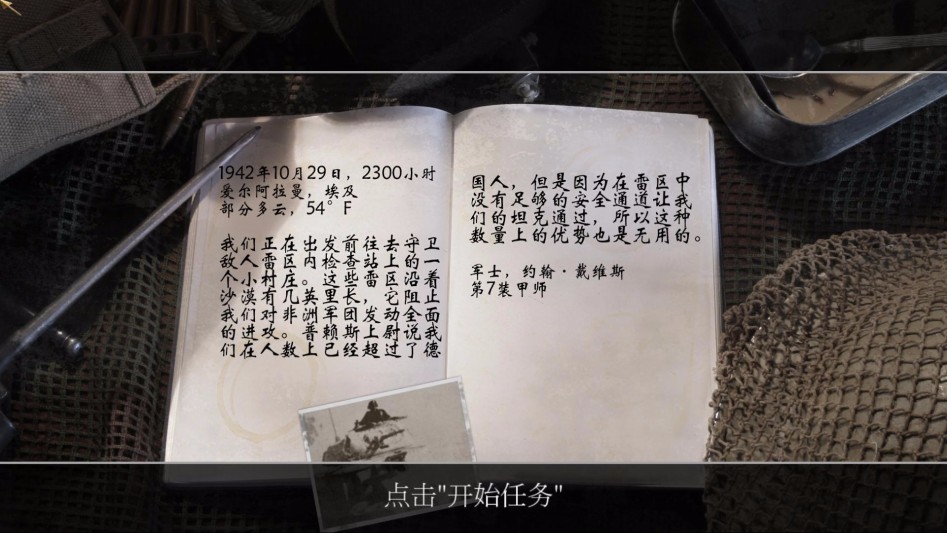 1942年10月29日，2300小时
爱尔阿拉曼，埃及
部分多云，54°F
我们正在出发前往去守卫
敌人雷区内检查站上的一
个小村庄。这些雷区沿着
沙漠有几英里长，它阻止
我们对非洲军团发动全面
的进攻。普赖斯上尉说我
们在人数上已经超过了德
国人，但是因为在雷区中
没有足够的安全通道让我
们的坦克通过，所以这种
数量上的优势也是无用的。
军士，约翰·戴维斯
第7装甲师
点击"开始任务"